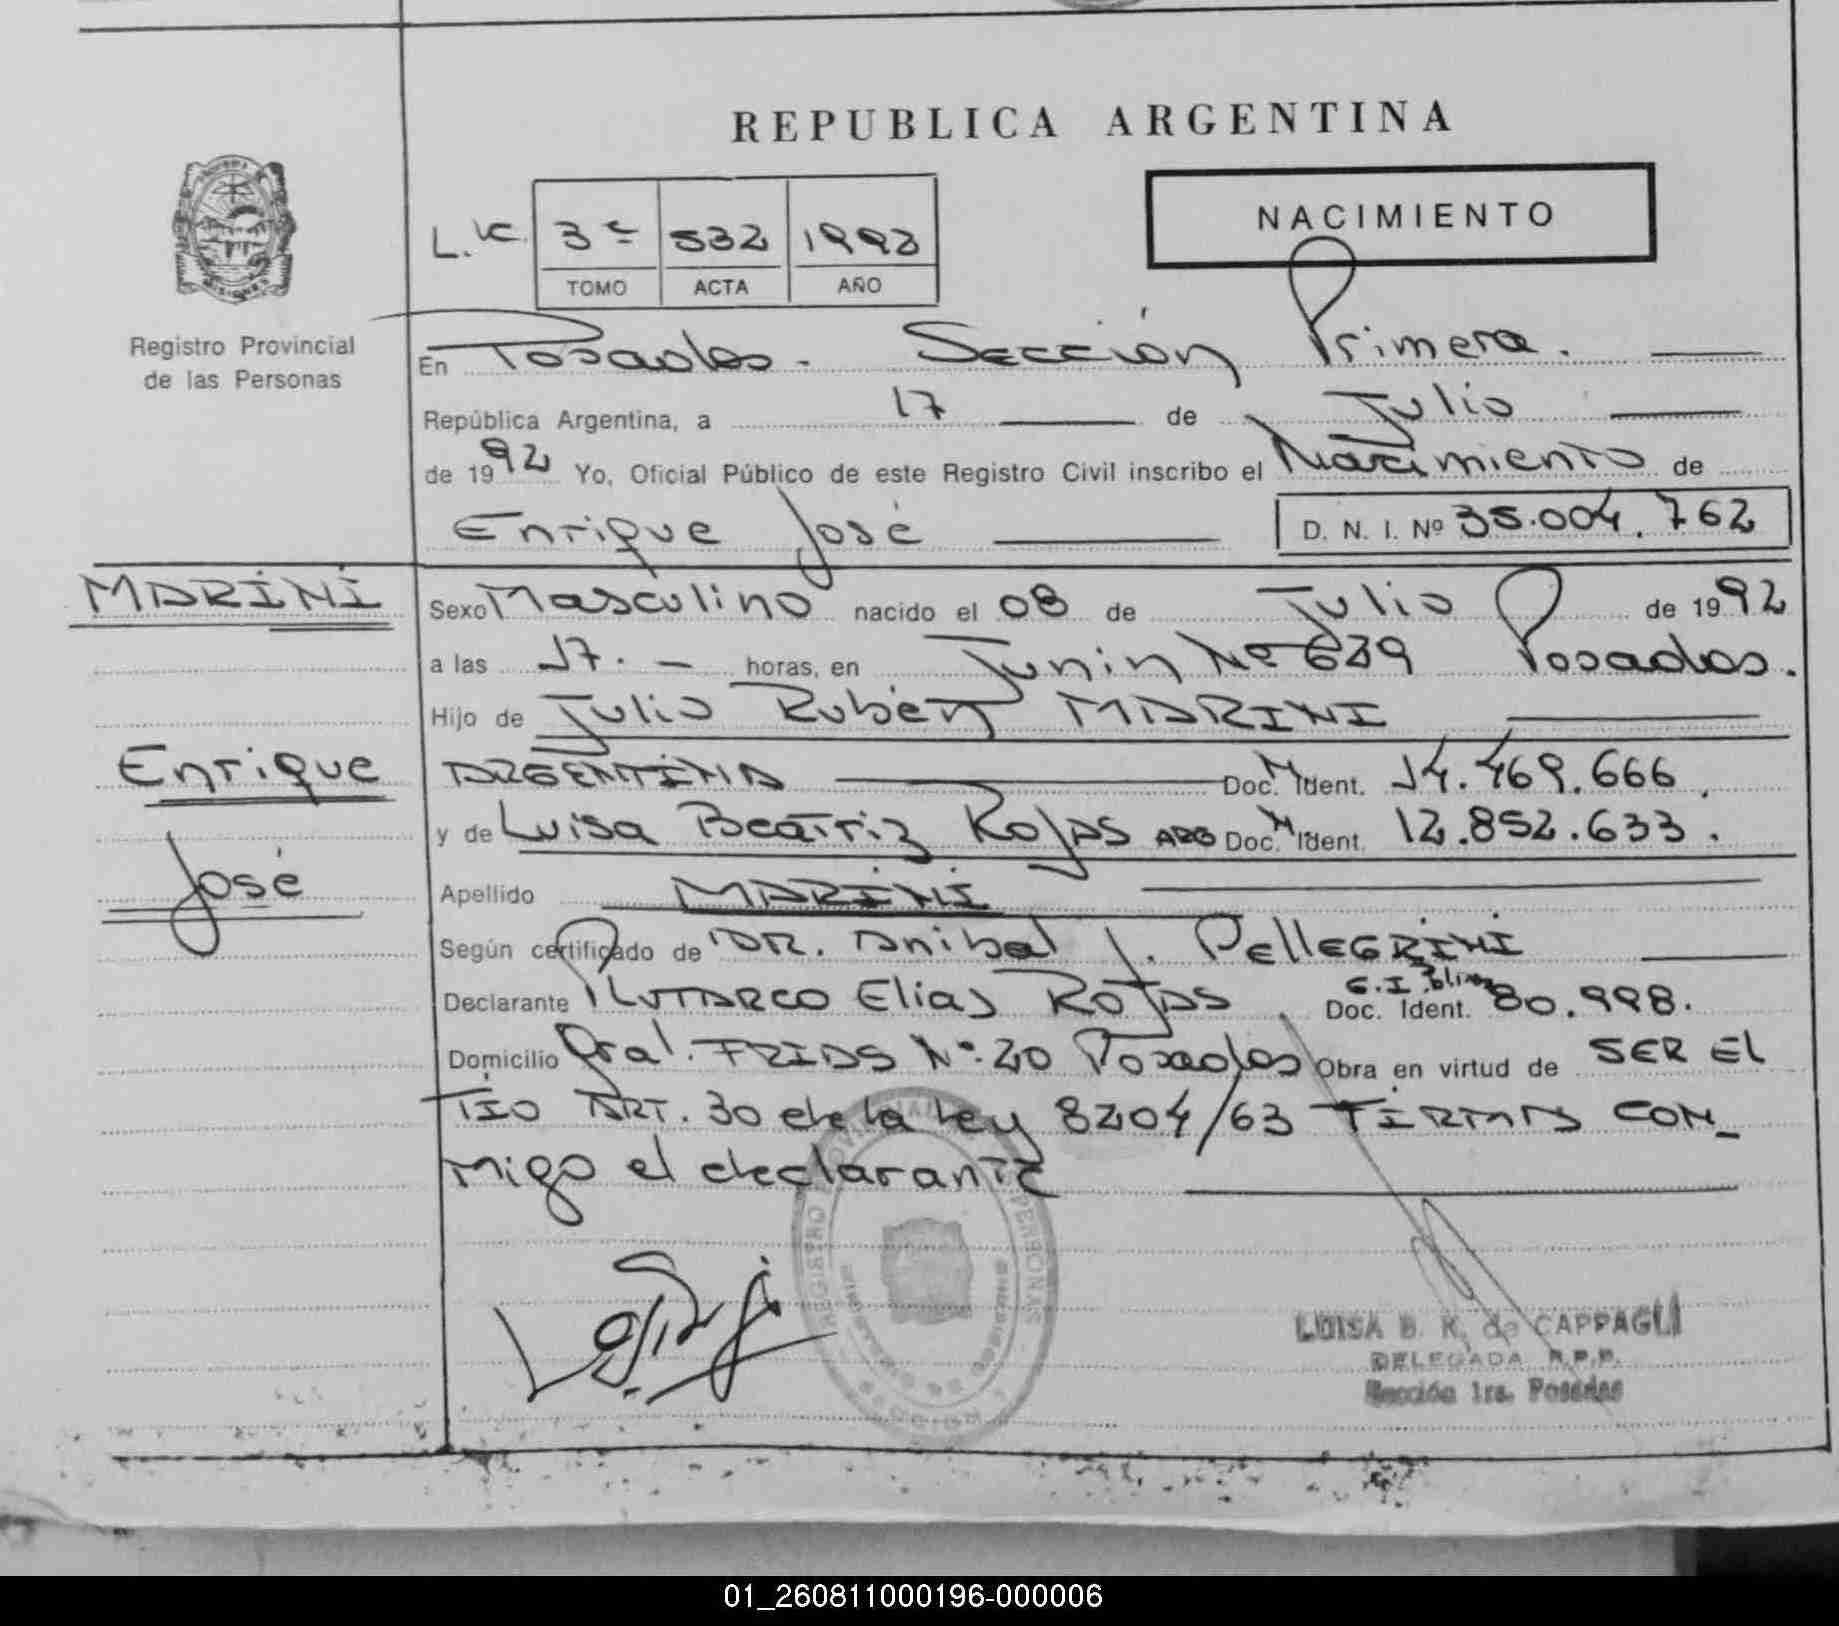 REPUBLICA ARGENTINA
NACIMIENTO
3º 532 1992
TOMO ACTA AÑO
Registro Provincial
de las Personas
En Posadas. Sección Primera.
República Argentina, a 17 de Julio
de 1992 Yo, Oficial Público de este Registro Civil inscribo el Nacimiento de
Enrique José D. N. I. Nº 35.004.762
MARINI
Sexo Masculino nacido el 08 de Julio de 1992
a las 17.- horas, en Junin Nº 639 Posadas.
Hijo de Julio Rubén MARINI
Enrique
ARGENTINA Doc. M Ident. 14.469.666.
y de Luisa Beatriz Rojas ARG Doc. M Ident. 12.852.633.
José
Apellido MARINI
Según certificado de DR. Anibal J. PELLEGRINI
Declarante PLUTARCO Elias ROJAS C.I. Doc. Ident. 80.998.
Domicilio Gral. FRIAS Nº 20 Posadas Obra en virtud de SER El
TIO ART. 30 de la ley 8204/63 FIRMA CON_
migo el declarante
LUISA B. K. de CAPPAGLI
DELEGADA R.P.P.
Sección 1ra. Posadas
01_260811000196-000006